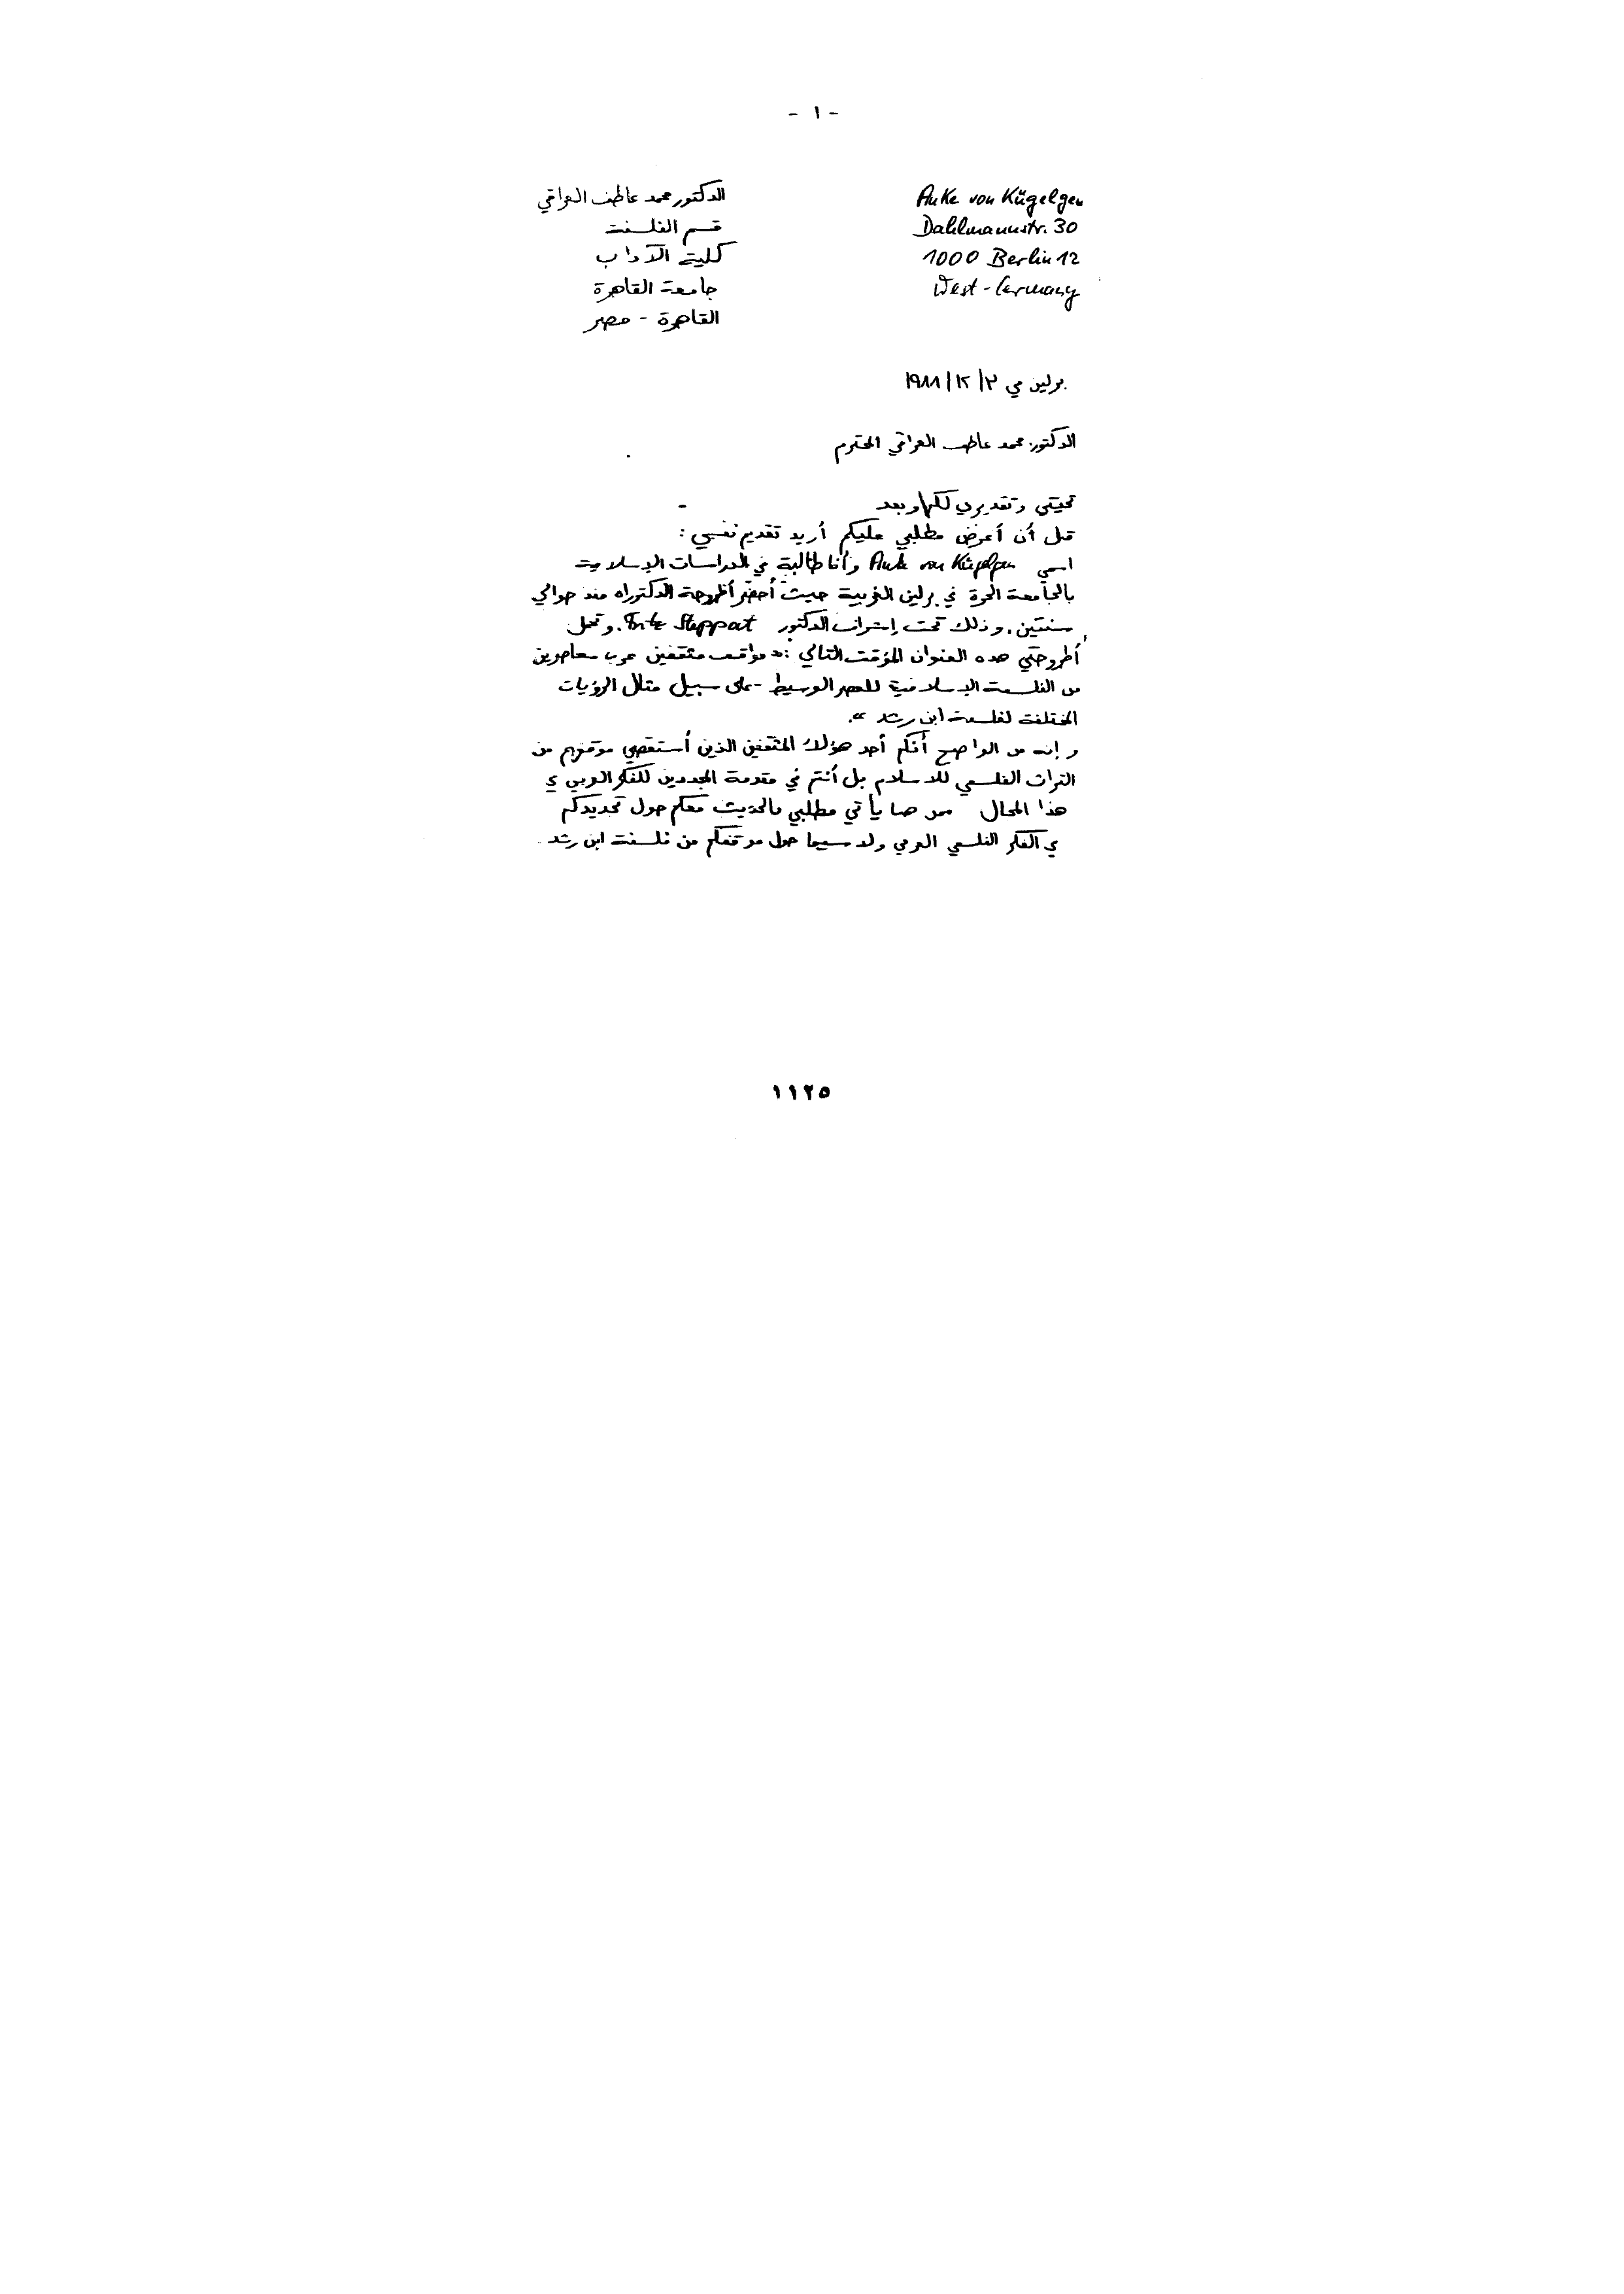 - ١ -
Anke von Kügelgen
Dahlmannstr. 30
1000 Berlin 12
West-Germany
الدكتور محمد عاطف العراقي
قسم الفلسفة
كلية الآداب
جامعة القاهرة
القاهرة - مصر
برلين في ٢/١٢/١٩٨٨
الدكتور محمد عاطف العراقي المحترم
تحيتي وتقديري لكم وبعد
قبل أن أعرض مطلبي عليكم أريد تقديم نفسي :
اسمي Anke von Kügelgen وأنا طالبة في الدراسات الإسلامية
بالجامعة الحرة في برلين الغربية حيث أحضر أطروحة الدكتوراه منذ حوالي
سنتين، وذلك تحت إشراف الدكتور Fritz Steppat. وتحمل
أطروحتي هذه العنوان المؤقت التالي : « مواقف مثقفين عرب معاصرين
من الفلسفة الإسلامية للعصر الوسيط - على سبيل مثال الرؤيات
المختلفة لفلسفة ابن رشد ».
وإنه من الواضح أنكم أحد هؤلاء المثقفين الذين أستقصي موقفهم من
التراث الفلسفي للاسلام بل أنتم في مقدمة المجددين للفكر العربي في
هذا المجال فمن هنا يأتي مطلبي بالحديث معكم حول تجديدكم
في الفكر الفلسفي العربي ولا سيما حول موقفكم من فلسفة ابن رشد.
١١٢٥